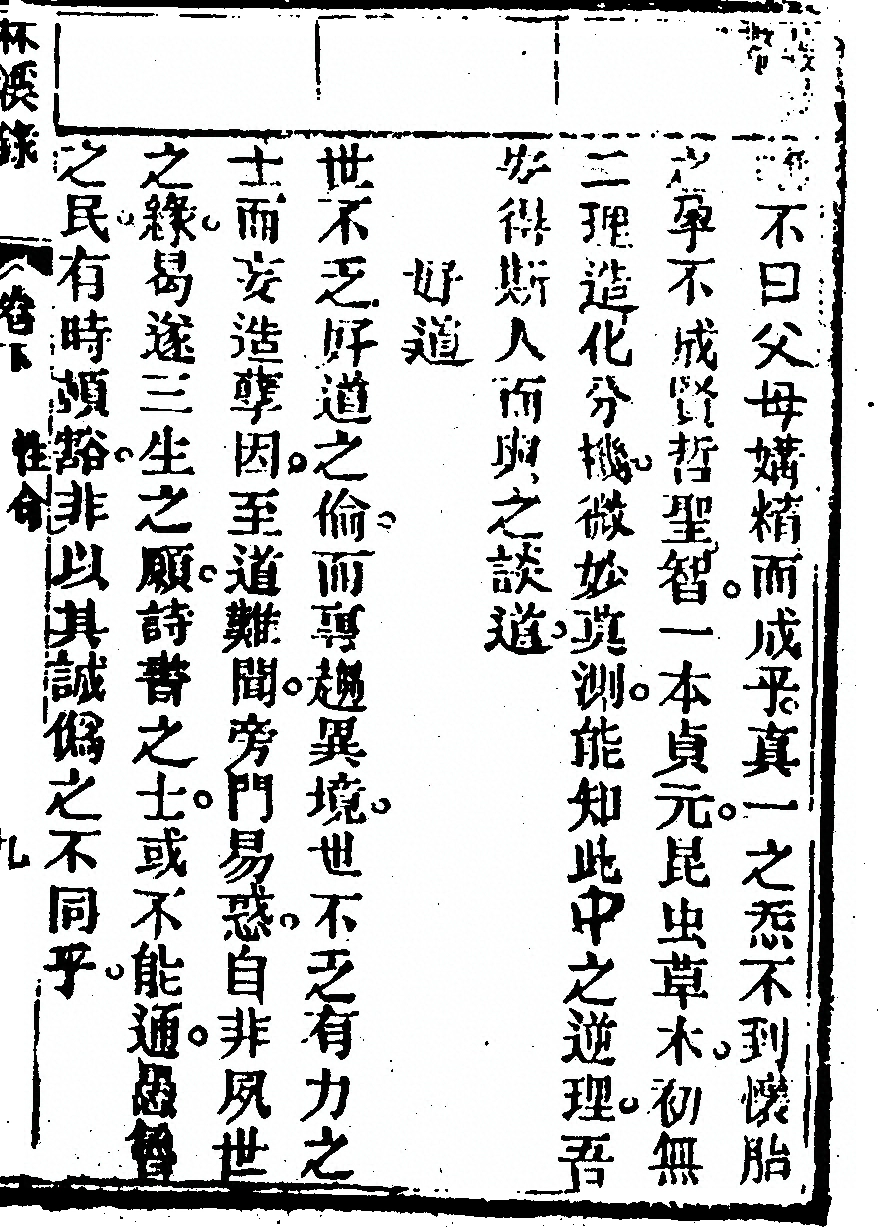 不曰父母媾精而成乎真一之炁不到懷胎
之孕不成賢哲聖智一本貞元昆虫草木初無
二理造化分機微妙莫測能知此中之逆理吾
安得斯人而與之談道
好道
世不乏好道之倫而專趨異境世不乏有力之
士而妄造孽因至道難聞旁門易惑自非夙世
之緣曷遂三生之願詩書之士或不能通愚魯
之民有時頓豁非以其誠偽之不同乎
林溪錄
卷下
性命
九